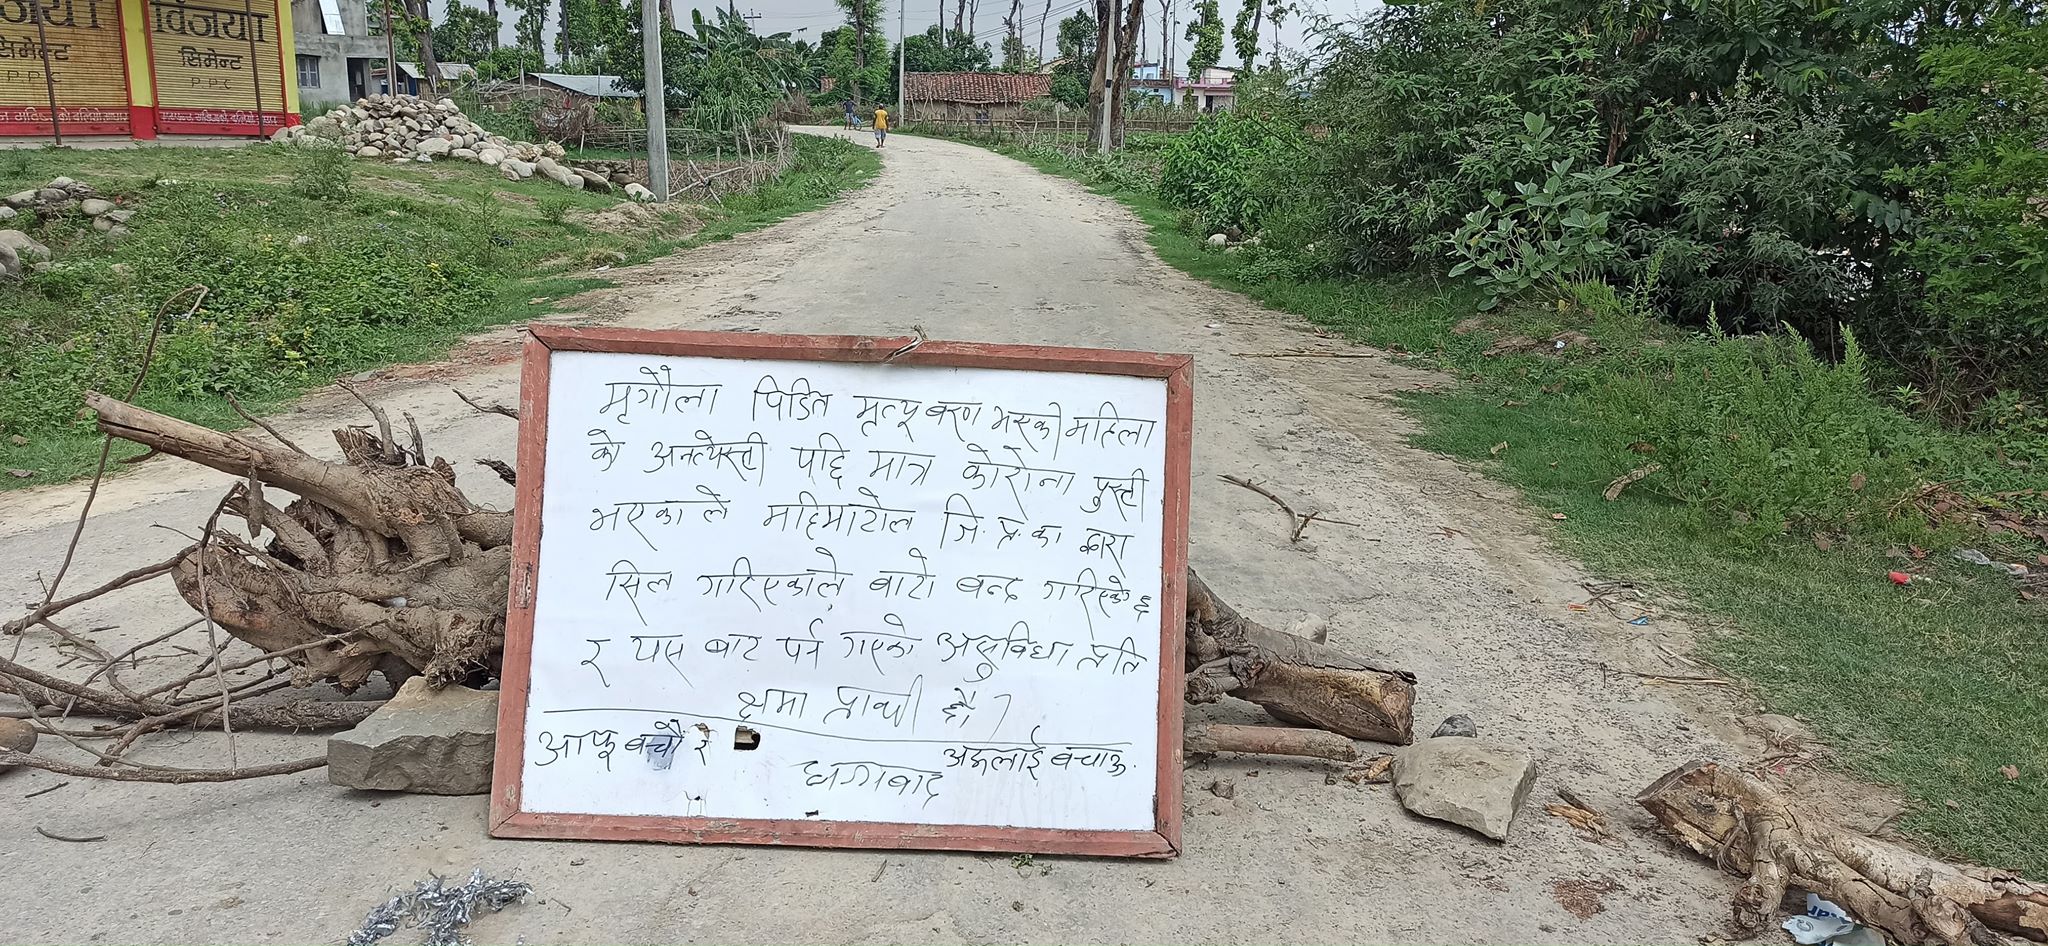 विजया
सिमेन्ट
P P C
सिमेन्ट
P P C
मृगौला पिडित मृत्यू बरण भएको महिला
को अन्त्येस्टी पछि मात्र कोरोना पुस्टी
भएकाले महिमाटोल जि.प्र.का द्वारा
सिल गरिएकाले बाटो बन्द गरिएको छ
र यस बाट पर्न गएको असुविधा प्रति
क्षमा प्रार्थी छौं।
आफू बचौं र अरुलाई बचाऊ.
धन्यबाद